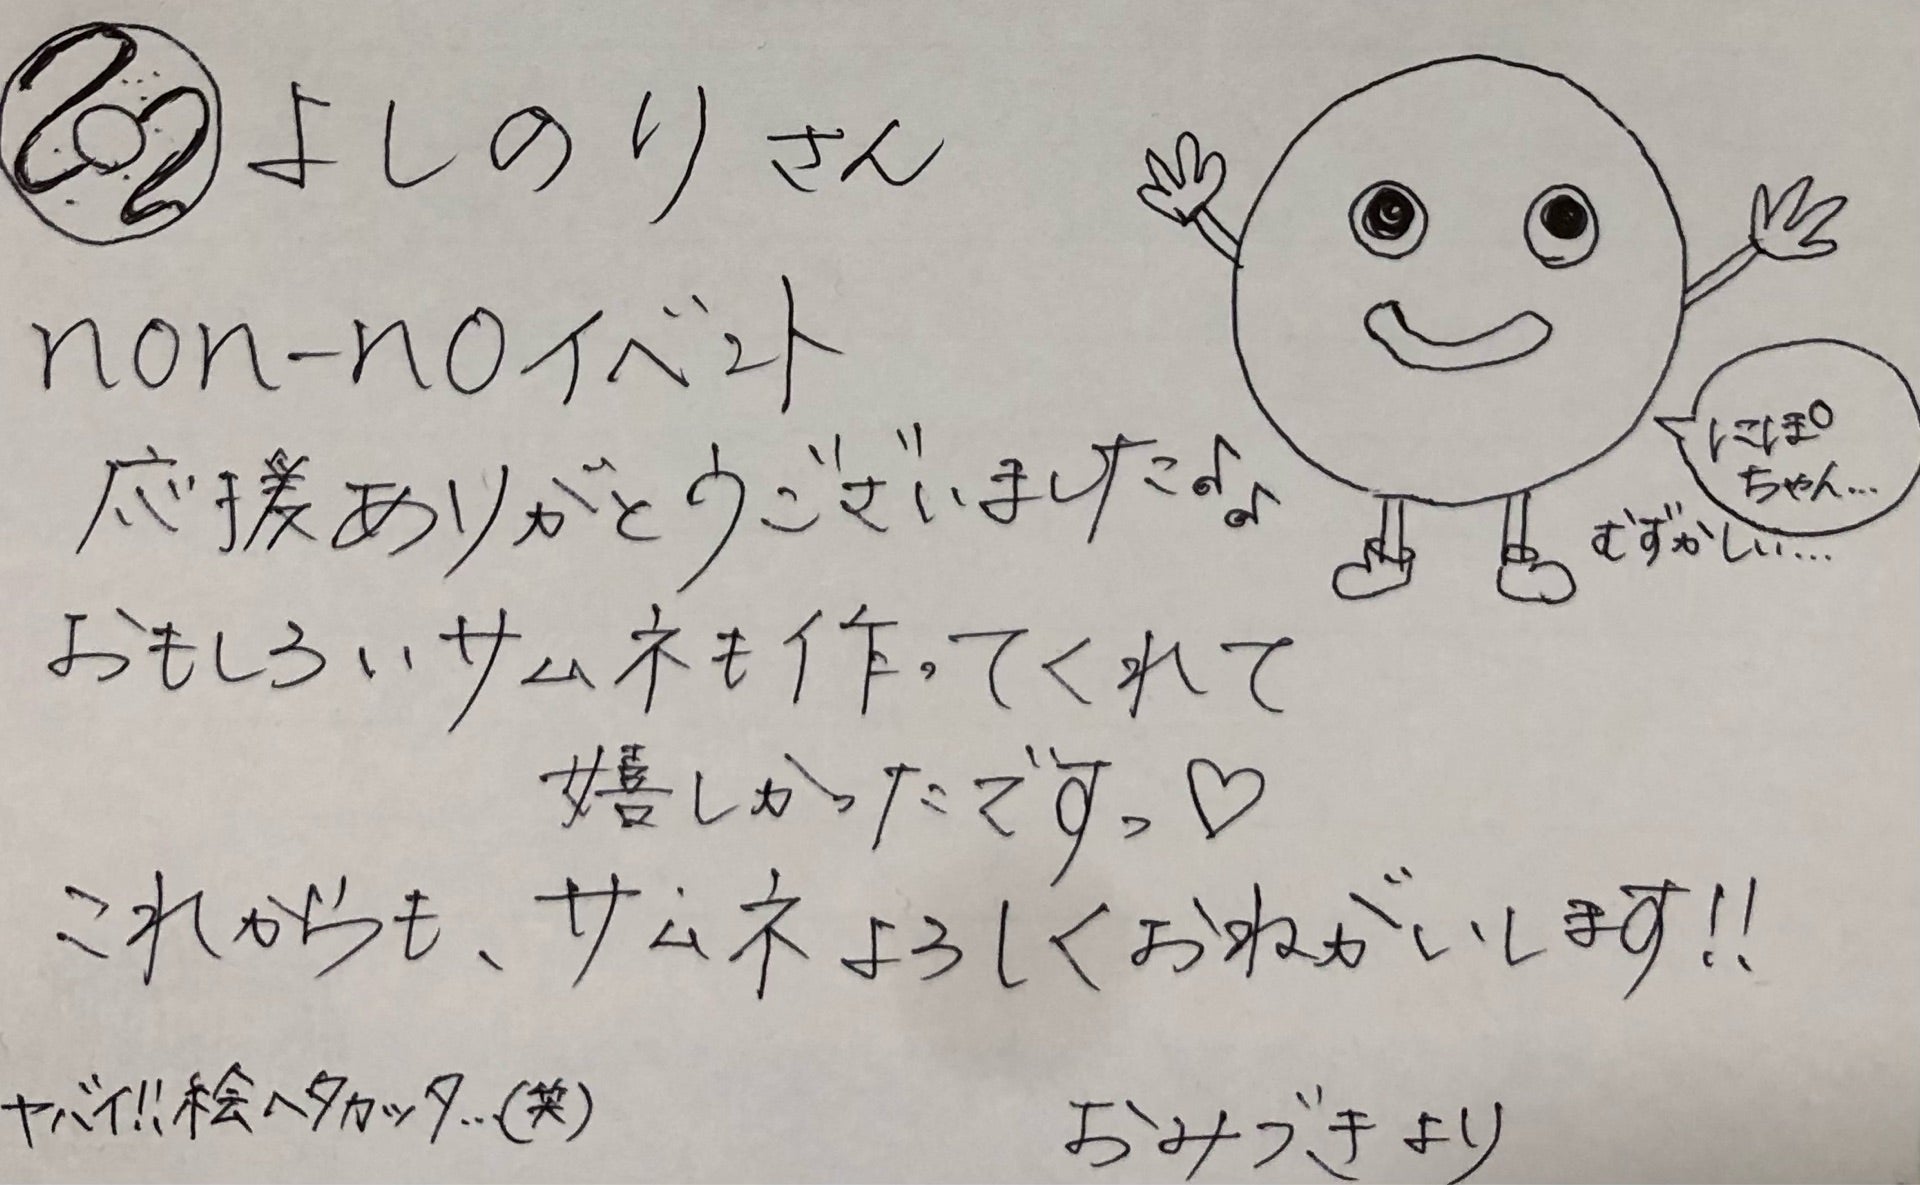 よしのりさん
non-noイベント
応援ありがとうございました♪♪
にほぽ
ちゃん…
むずかしい…
おもしろいサムネも作ってくれて
嬉しかったですっ♡
これからも、サムネよろしくおねがいします!!
ヤバイ!!絵ヘタカッタ…(笑)
おみづきより